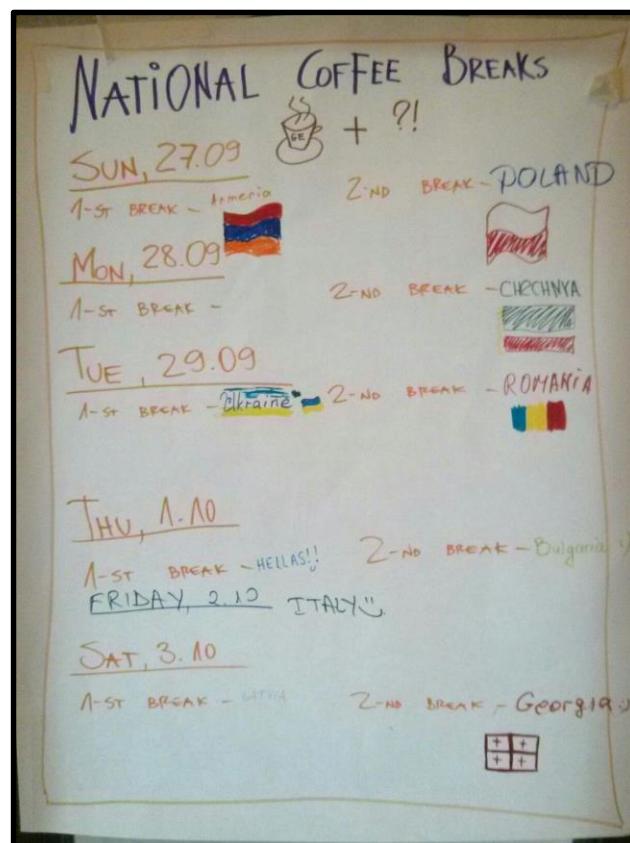 NATIONAL COFFEE BREAKS
GE + ?!
SUN, 27.09
1-ST BREAK - Armenia 2-ND BREAK - POLAND
MON, 28.09
1-ST BREAK - 2-ND BREAK - CHECHNYA
TUE, 29.09
1-ST BREAK - Ukraine 2-ND BREAK - ROMANIA
THU, 1.10
1-ST BREAK - HELLAS!! 2-ND BREAK - Bulgaria :)
FRIDAY, 2.10 ITALY
SAT, 3.10
1-ST BREAK - LATVIA 2-ND BREAK - Georgia :)